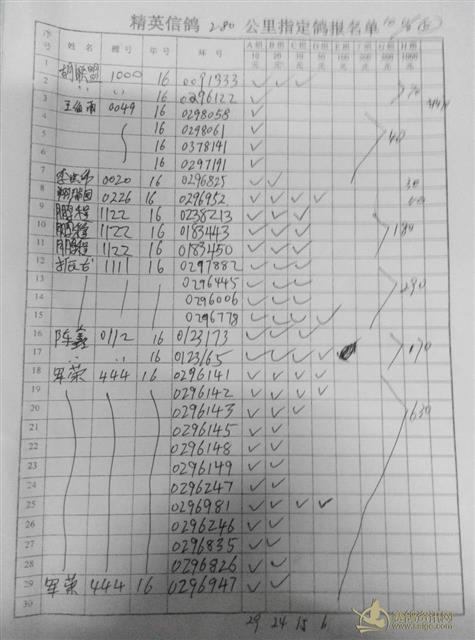 精英信鸽 280 公里指定鸽报名单
序号 姓名 棚号 年号 环号 A组 10元 B组 20元 C组 30元 D组 50元 E组 100元 F组 G组 H组 1000元
1 胡联盟 1000 16 0091333 ✓ ✓ ✓ ✓
2 〃 〃 16 0296122 ✓ 70
3 王 雨 0049 16 0298058 ✓
4 16 0298061 ✓
5 16 0378141 ✓ 40
6 16 0297191 ✓
7 0020 16 0296825 ✓ ✓ 30
8 0226 16 0296952 ✓ ✓ ✓ ✓
9 鹏程 1122 16 0238213 ✓ ✓ ✓
10 鹏程 1122 16 0183443 ✓ ✓ ✓ 180
11 鹏程 1122 16 0183450 ✓ ✓ ✓
12 1111 16 0297882 ✓ ✓ ✓
13 0296445 ✓ ✓ ✓
14 0296006 ✓ ✓ ✓ 290
15 0296778 ✓ ✓ ✓ ✓
16 陈鑫 0112 16 0123173 ✓ ✓ ✓
17 〃 〃 16 0123165 ✓ ✓ ✓ ✓ 170
18 军荣 444 16 0296141 ✓ ✓ ✓ ✓
19 0296142 ✓ ✓ ✓ ✓
20 0296143 ✓ ✓ ✓ 630
21 0296145 ✓ ✓
22 0296148 ✓ ✓
23 0296149 ✓ ✓
24 0296247 ✓ ✓
25 0296981 ✓ ✓ ✓ ✓
26 0296246 ✓ ✓
27 0296835 ✓ ✓
28 0296826 ✓ ✓
29 军荣 444 16 0296947 ✓ ✓
30
29 24 15 6
赛鸽资讯网
www.saige.com